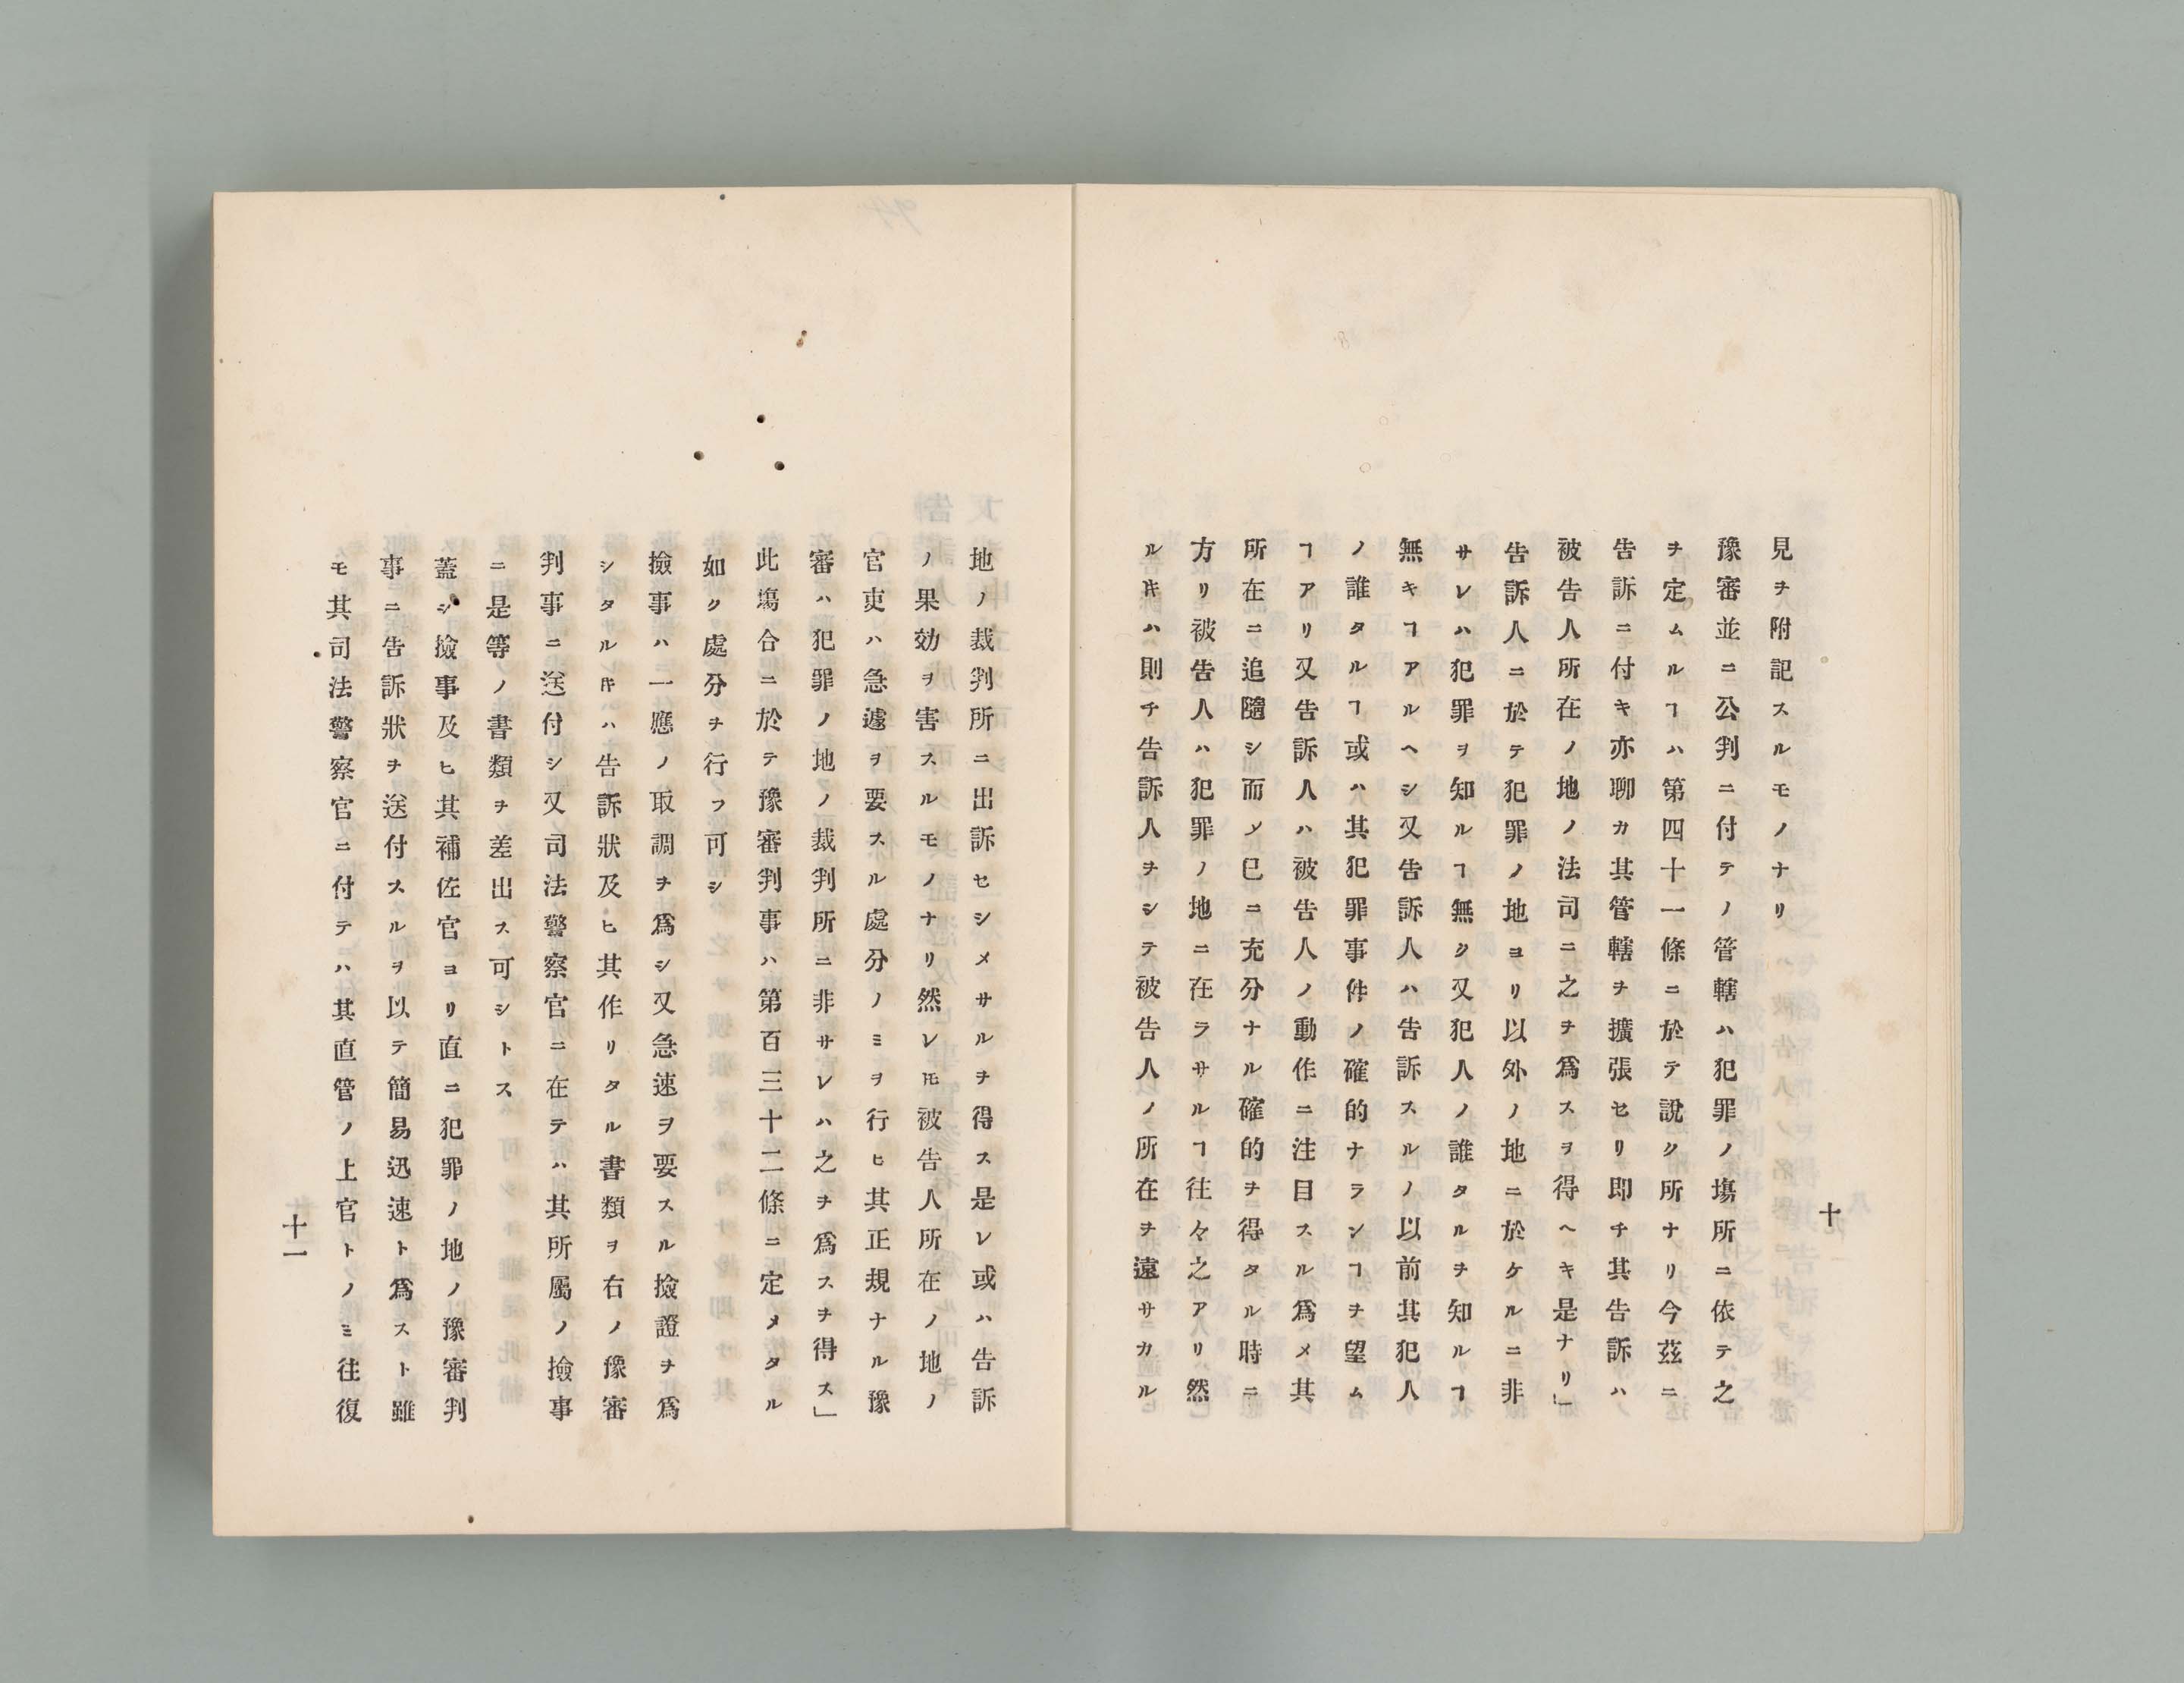 十
見ヲ附記スルモノナリ
豫審並ニ公判ニ付テノ管轄ハ犯罪ノ塲所ニ依テ之
ヲ定ムルヿハ第四十一條ニ於テ說ク所ナリ今茲ニ
告訴ニ付キ亦聊カ其管轄ヲ擴張セリ即チ其告訴ハ
被告人所在ノ地ノ法司ニ之ヲ爲スヲ得ヘキ是ナリ」
告訴人ニ於テ犯罪ノ地ヨリ以外ノ地ニ於ケルニ非
サレハ犯罪ヲ知ルヿ無ク又犯人ノ誰タルヲ知ルヿ
無キヿアルヘシ又告訴人ハ告訴スルノ以前其犯人
ノ誰タルヿ或ハ其犯罪事件ノ確的ナランヿヲ望ム
ヿアリ又告訴人ハ被告人ノ動作ニ注目スル爲メ其
所在ニ追隨シ而〆已ニ充分ナル確的ヲ得タル時ニ
方リ被告人ハ犯罪ノ地ニ在ラサルヿ往々之アリ然
ル𪜈ハ則チ告訴人ヲシテ被告人ノ所在ヲ遠サカル
地ノ裁判所ニ出訴セシメサルヲ得ス是レ或ハ告訴
ノ果効ヲ害スルモノナリ然レ𪜈被告人所在ノ地ノ
官吏ハ急遽ヲ要スル處分ノミヲ行ヒ其正規ナル豫
審ハ犯罪ノ地ノ裁判所ニ非サレハ之ヲ爲スヲ得ス」
此塲合ニ於テ豫審判事ハ第百三十二條ニ定メタル
如ク處分ヲ行フ可シ
撿事ハ一應ノ取調ヲ爲シ又急速ヲ要スル撿證ヲ爲
シタル𪜈ハ告訴狀及ヒ其作リタル書類ヲ右ノ豫審
判事ニ送付シ又司法警察官ニ在テハ其所屬ノ撿事
ニ是等ノ書類ヲ差出ス可シトス
蓋シ撿事及ヒ其補佐官ヨリ直ニ犯罪ノ地ノ豫審判
事ニ告訴狀ヲ送付スルヲ以テ簡易迅速ト爲スト雖
モ其司法警察官ニ付テハ其直管ノ上官トノミ往復
十一